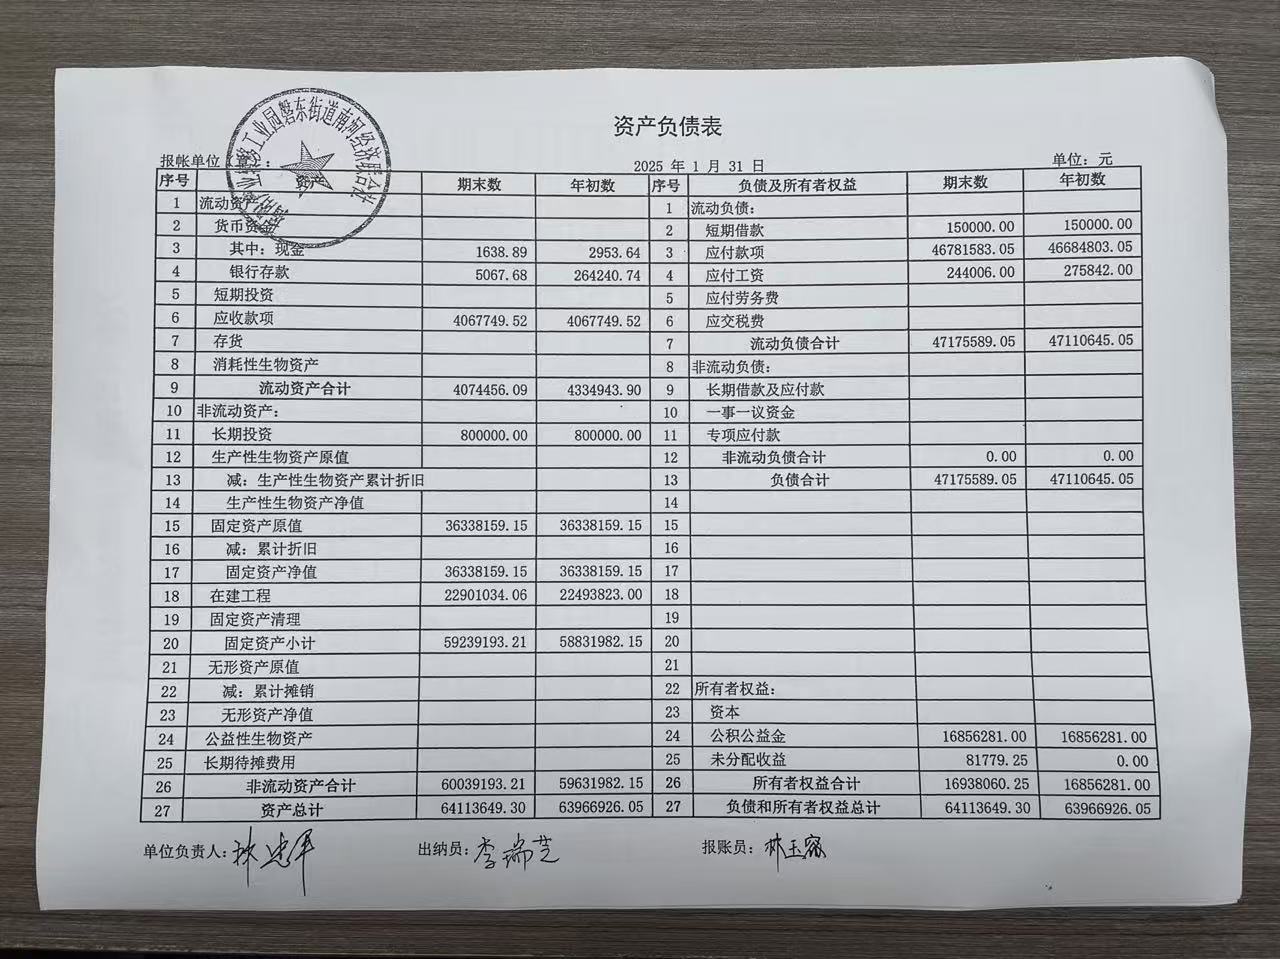 资产负债表
报帐单位(章):
2025 年 1 月 31 日
单位: 元
序号 资产 期末数 年初数 序号 负债及所有者权益 期末数 年初数
1 流动资产 1 流动负债:
2 货币资金 2 短期借款 150000.00 150000.00
3 其中: 现金 1638.89 2953.64 3 应付款项 46781583.05 46684803.05
4 银行存款 5067.68 264240.74 4 应付工资 244006.00 275842.00
5 短期投资 5 应付劳务费
6 应收款项 4067749.52 4067749.52 6 应交税费
7 存货 7 流动负债合计 47175589.05 47110645.05
8 消耗性生物资产 8 非流动负债:
9 流动资产合计 4074456.09 4334943.90 9 长期借款及应付款
10 非流动资产: 10 一事一议资金
11 长期投资 800000.00 800000.00 11 专项应付款
12 生产性生物资产原值 12 非流动负债合计 0.00 0.00
13 减: 生产性生物资产累计折旧 13 负债合计 47175589.05 47110645.05
14 生产性生物资产净值 14
15 固定资产原值 36338159.15 36338159.15 15
16 减: 累计折旧 16
17 固定资产净值 36338159.15 36338159.15 17
18 在建工程 22901034.06 22493823.00 18
19 固定资产清理 19
20 固定资产小计 59239193.21 58831982.15 20
21 无形资产原值 21
22 减: 累计摊销 22 所有者权益:
23 无形资产净值 23 资本
24 公益性生物资产 24 公积公益金 16856281.00 16856281.00
25 长期待摊费用 25 未分配收益 81779.25 0.00
26 非流动资产合计 60039193.21 59631982.15 26 所有者权益合计 16938060.25 16856281.00
27 资产总计 64113649.30 63966926.05 27 负债和所有者权益总计 64113649.30 63966926.05
单位负责人: 林 出纳员: 李瑞芝 报账员: 林玉
工业园磐东街道南河经济联合社